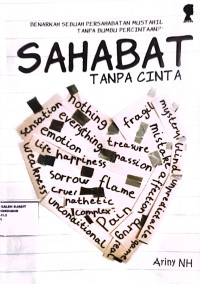 BENARKAH SEBUAH PERSAHABATAN MUSTAHIL
TANPA BUMBU PERCINTAAN?
SAHABAT
TANPA CINTA
sensation
nothing
everything
fragile
mystery
emotion
treasure
life happiness
passion
weakness
sorrow
flame
cruel
pathetic
complex
unconditional
pain
drug
affection
unpredictable
Ariny NH